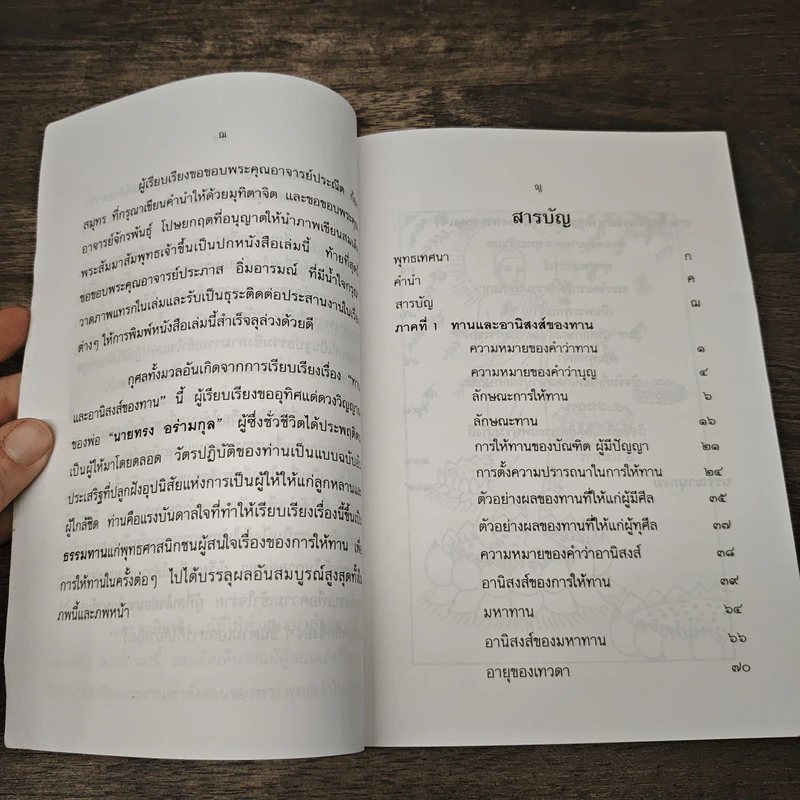 ฌ
ผู้เรียบเรียงขอขอบพระคุณอาจารย์ประณีต
สมุทร ที่กรุณาเขียนคำนำให้ด้วยมุทิตาจิต และขอขอบพระคุณ
อาจารย์จักรพันธุ์ โปษยกฤตที่อนุญาตให้นำภาพเขียนสมเด็จ
พระสัมมาสัมพุทธเจ้าขึ้นเป็นปกหนังสือเล่มนี้ ท้ายที่สุด
ขอขอบพระคุณอาจารย์ประภาส อิ่มอารมณ์ ที่มีน้ำใจกรุณา
วาดภาพแทรกในเล่มและรับเป็นธุระติดต่อประสานงานใน
ต่างๆ ให้การพิมพ์หนังสือเล่มนี้สำเร็จลุล่วงด้วยดี
กุศลทั้งมวลอันเกิดจากการเรียบเรียงเรื่อง "ทาน
และอานิสงส์ของทาน" นี้ ผู้เรียบเรียงขออุทิศแด่ดวงวิญญาณ
ของพ่อ "นายทรง อร่ามกุล" ผู้ซึ่งชั่วชีวิตได้ประพฤติตน
เป็นผู้ให้มาโดยตลอด วัตรปฏิบัติของท่านเป็นแบบฉบับอัน
ประเสริฐที่ปลูกฝังอุปนิสัยแห่งการเป็นผู้ให้ให้แก่ลูกหลานและ
ผู้ใกล้ชิด ท่านคือแรงบันดาลใจที่ทำให้เรียบเรียงเรื่องนี้ขึ้นเป็น
ธรรมทานแก่พุทธศาสนิกชนผู้สนใจเรื่องของการให้ทาน เพื่อ
การให้ทานในครั้งต่อๆ ไปได้บรรลุผลอันสมบูรณ์สูงสุดทั้งใน
ภพนี้และภพหน้า
ญ
สารบัญ
พุทธเทศนา ก
คำนำ ค
สารบัญ ฌ
ภาคที่ 1 ทานและอานิสงส์ของทาน
ความหมายของคำว่าทาน ๑
ความหมายของคำว่าบุญ ๔
ลักษณะการให้ทาน ๖
ลักษณะทาน ๑๖
การให้ทานของบัณฑิต ผู้มีปัญญา ๒๑
การตั้งความปรารถนาในการให้ทาน ๒๔
ตัวอย่างผลของทานที่ให้แก่ผู้มีศีล ๓๕
ตัวอย่างผลของทานที่ให้แก่ผู้ทุศีล ๓๗
ความหมายของคำว่าอานิสงส์ ๓๘
อานิสงส์ของการให้ทาน ๓๙
มหาทาน ๖๔
อานิสงส์ของมหาทาน ๖๖
อายุของเทวดา ๗๐